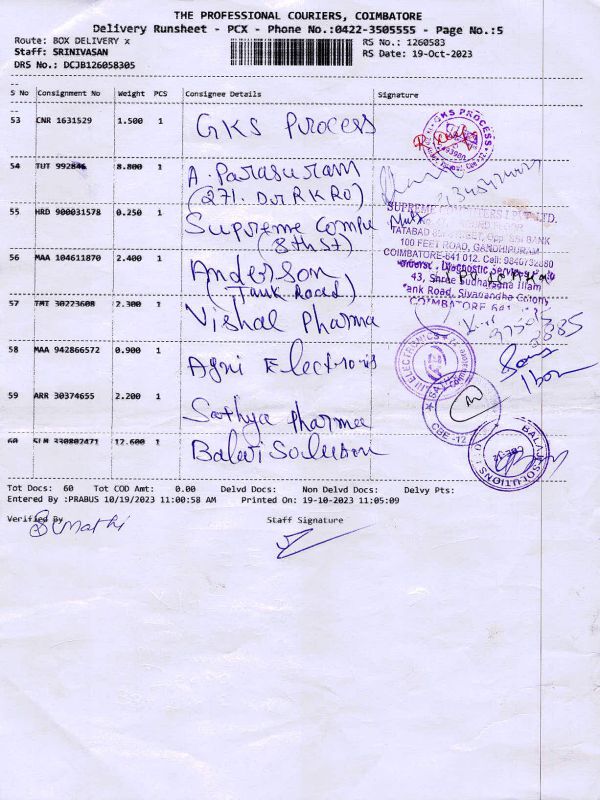 THE PROFESSIONAL COURIERS, COIMBATORE
Delivery Runsheet - PCX - Phone No.:0422-3505555 - Page No.:5
Route: BOX DELIVERY x
RS No.: 1260583
Staff: SRINIVASAN
RS Date: 19-Oct-2023
DRS No.: DCJB126058305
S No Consignment No Weight PCS Consignee Details Signature
53 CNR 1631529 1.500 1 GKS Process
GKS PROCESS
54 TUT 992846 8.800 1 A. Parasuram
(271. D.V.R K RD)
55 HRD 900031578 0.250 1 Supreme Compu
(8th St)
SUPREME COMPUTERS I PVT LTD.
TATABAD 8th STREET, OPP. SBI BANK
100 FEET ROAD, GANDHIPURAM
COIMBATORE-641 012. Cell: 9846732880
56 MAA 104611870 2.400 1 Anderson
(Tank Road)
Anderson, Diagnostic Services
43, Shree Sudharsana Illam
Tank Road, Sivanandha Colony
COIMBATORE 641
57 TMT 30223608 2.300 1 Vishal Pharma
58 MAA 942866572 0.900 1 Agni Electronis
ELECTRONICS
59 ARR 30374655 2.200 1 Sathya Pharma
CBE-12
60 SLM 330802471 12.600 1 Balaji Solution
BALAJI SOLUTIONS
CBE-12
Tot Docs: 60 Tot COD Amt: 0.00 Delvd Docs: Non Delvd Docs: Delvy Pts:
Entered By :PRABUS 10/19/2023 11:00:58 AM Printed On: 19-10-2023 11:05:09
Verified By
Staff Signature